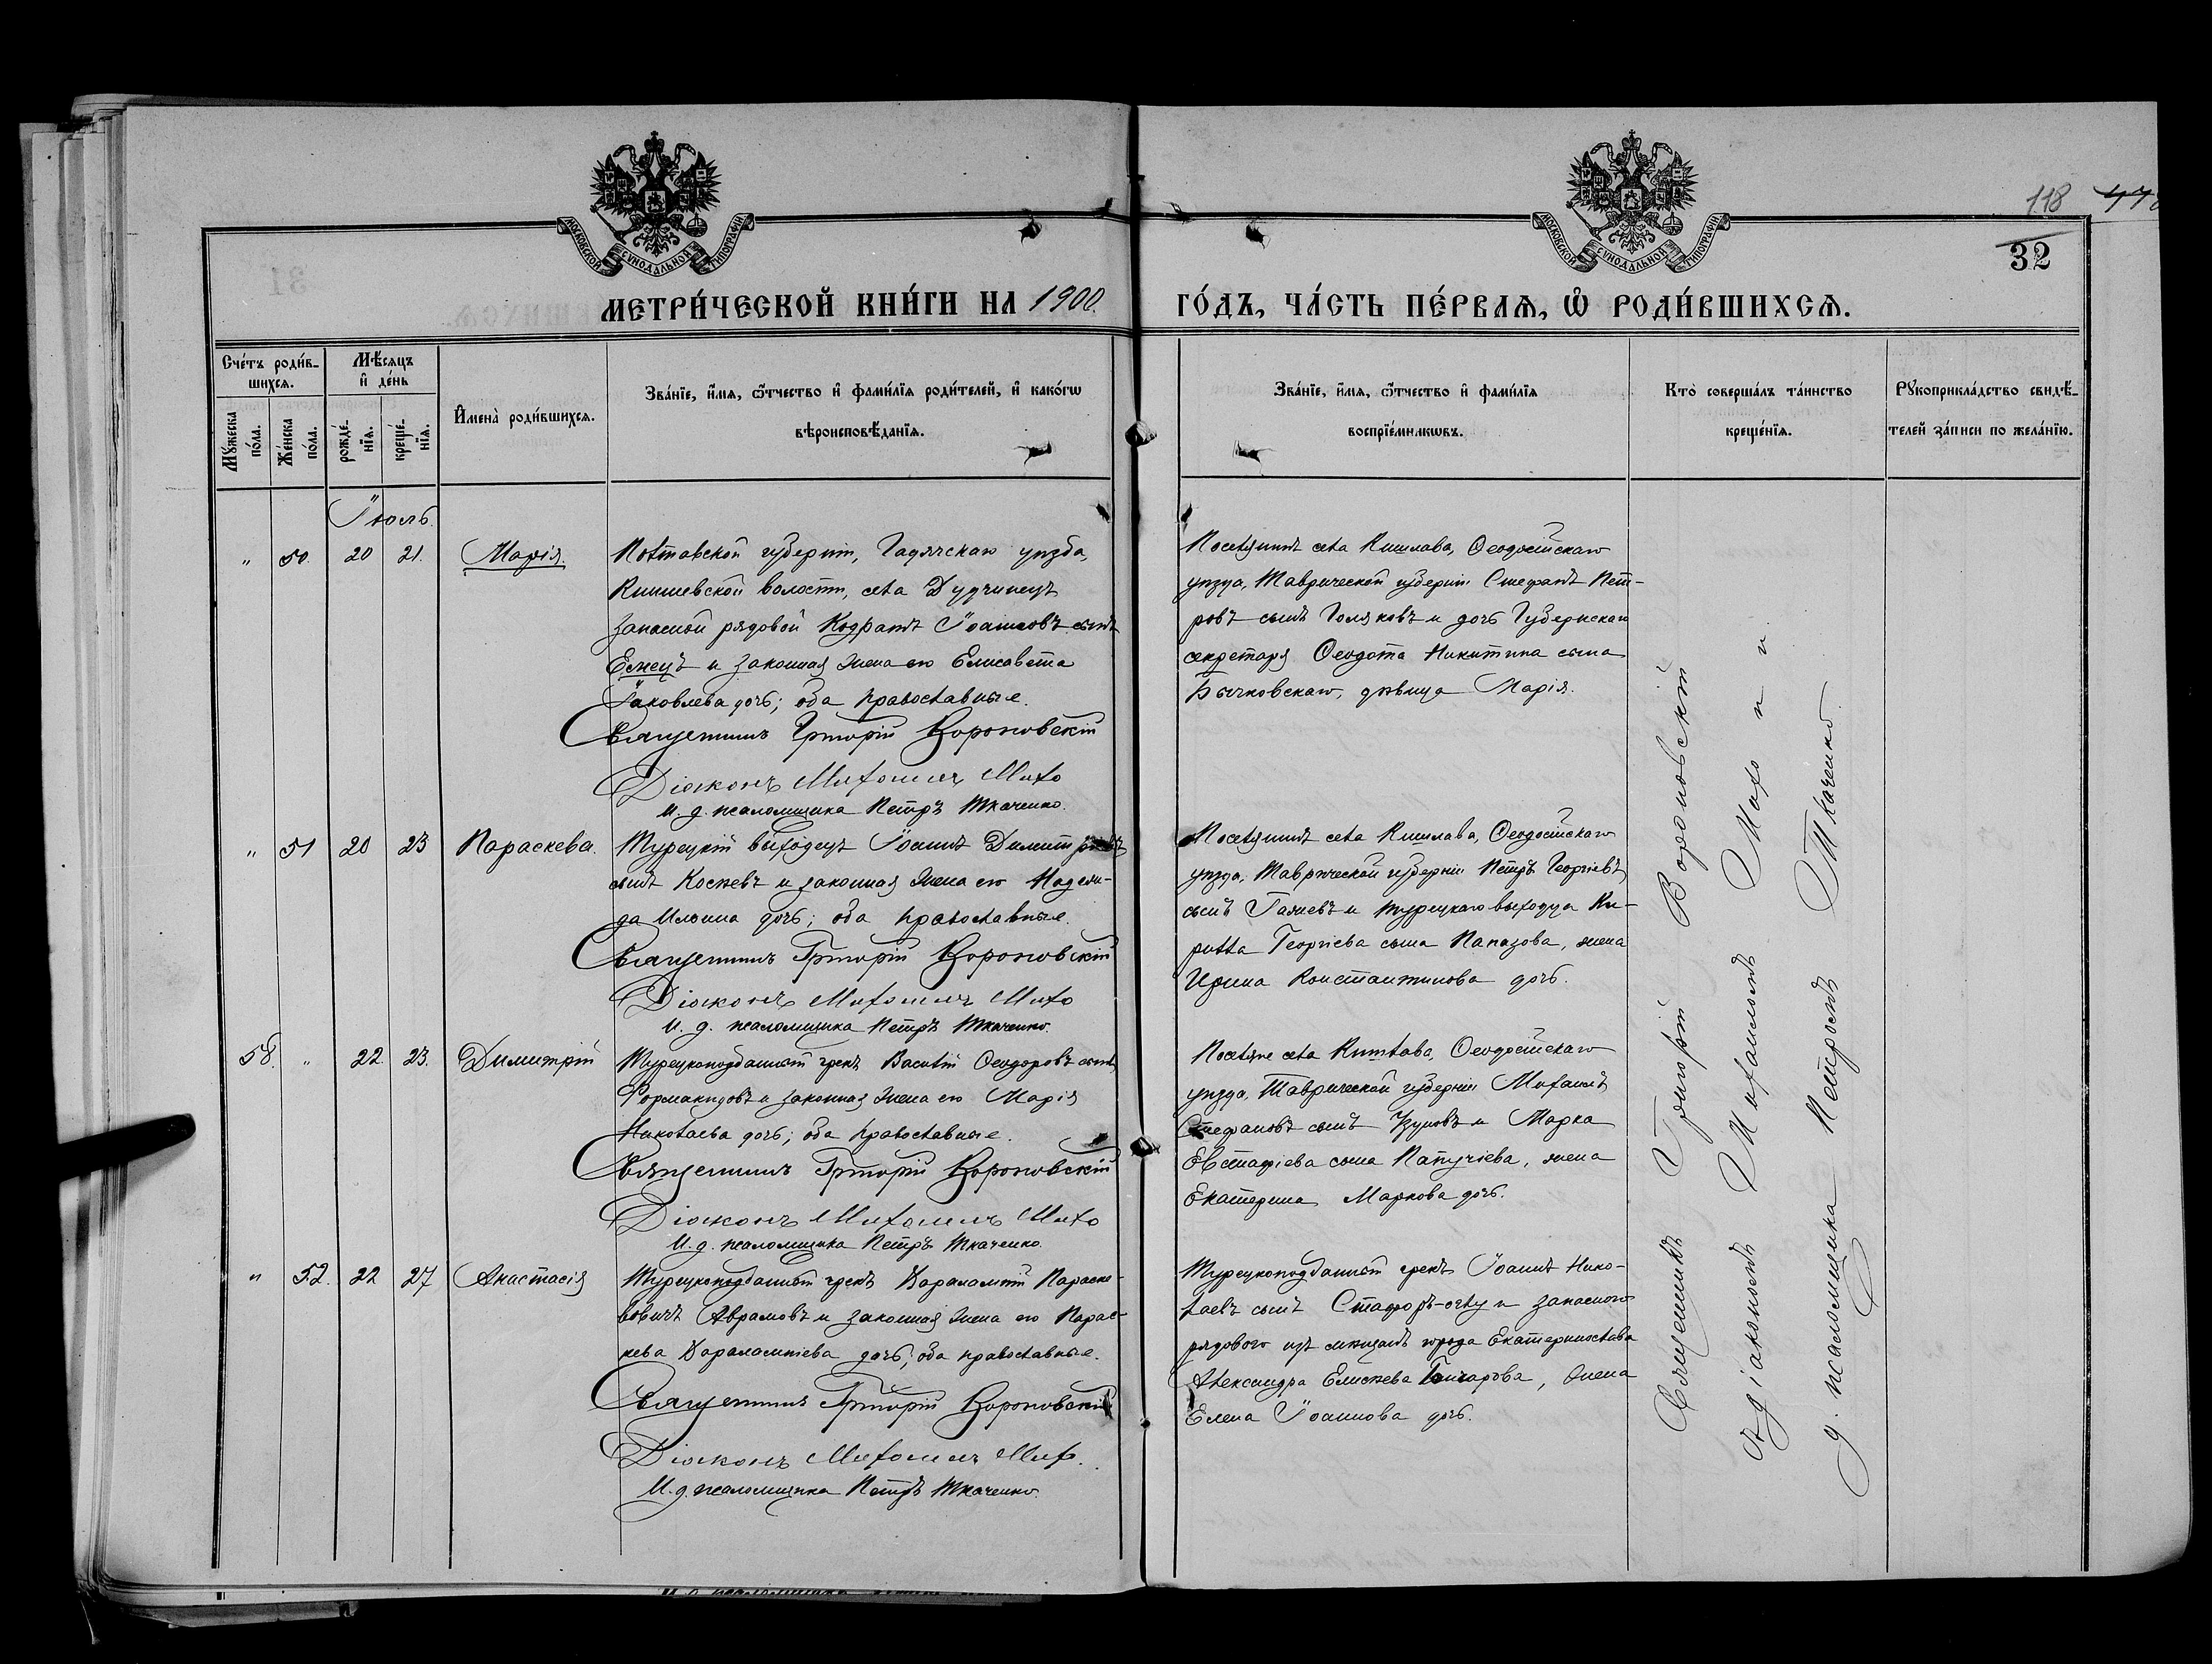 118
32
МОСКОВСКОЙ СѴНОДАЛЬНОЙ ТИПОГРАФІИ
МОСКОВСКОЙ СѴНОДАЛЬНОЙ ТИПОГРАФІИ
МЕТРИ́ЧЕСКОЙ КНИ́ГИ НА 1900. ГО́ДЪ, ЧА́СТЬ ПЕ́РВАѦ, Ѡ҆ РОДИ́ВШИХСѦ.
Сче́тъ роди́в-
шихсѧ.
Мѣ́сѧцъ
и҆ де́нь
Мꙋ́жеска по́ла.
Же́нска по́ла.
рожде́-
нїѧ.
креще́-
нїѧ.
И҆мена̀ роди́вшихсѧ.
Зва́нїе, и҆́мѧ, ѻ҆́тчество и҆ фами́лїѧ роди́телей, и҆ како́гѡ
вѣроисповѣ́данїѧ.
Зва́нїе, и҆́мѧ, ѻ҆́тчество и҆ фами́лїѧ
воспрїе́мникѡвъ.
Кто̀ соверша́лъ та́инство
креще́нїѧ.
Рꙋкоприкла́дство свидѣ́-
телей за́писи по жела́нїю.
Іюль.
" 50. 20 21. Марія.
Полтавской губерніи, Гадячскаго уѣзда,
волости, села
запасной рядовой Кодратъ Іоанновъ сынъ
Ежецъ и законная жена его Елисавета
Іаковлева дочь; оба православные.
Священникъ Григорій Вороновскій
Діаконъ Михаилъ Махо
И. д. псаломщика Петръ Ткаченко.
Поселянинъ села Кишлава, Ѳеодосійскаго
уѣзда, Таврической губерніи Стефанъ Пет-
ровъ сынъ Голяковъ и дочь Губернскаго
секретаря Ѳеодота Никитина сына
Бычковскаго, дѣвица Марія.
" 51 20 23 Параскева.
Турецкій выходецъ Іоаннъ Димитріевъ
сынъ и законная жена его Надеж-
да Ильина дочь; оба православные.
Священникъ Григорій Вороновскій
Діаконъ Михаилъ Махо
И. д. псаломщика Петръ Ткаченко.
Поселянинъ села Кишлава, Ѳеодосійскаго
уѣзда, Таврической губерніи Петръ Георгіевъ
сынъ и турецкаго выходца Ки-
рилла Георгіева сына Папазова, жена
Ирина Константинова дочь.
58. " 22 23. Димитрій
Турецкоподданный грекъ Василій Ѳеодоровъ сынъ
и законная жена его Марія
Николаева дочь; оба православные.
Священникъ Григорій Вороновскій
Діаконъ Михаилъ Махо
И. д. псаломщика Петръ Ткаченко.
Поселяне села Кишлава, Ѳеодосійскаго
уѣзда, Таврической губерніи Михаилъ
Стефановъ сынъ Узуновъ и Марка
Евстафіева сына жена
Екатерина Маркова дочь.
" 52. 22 27 Анастасія
Турецкоподданный грекъ Харалампій Параске-
вовичъ Аврамовъ и законная жена его Парас-
кева Харалампіева дочь; оба православные.
Священникъ Григорій Вороновскій
Діаконъ Михаилъ Махо
И. д. псаломщика Петръ Ткаченко.
Турецкоподданный грекъ Іоаннъ Нико-
лаевъ сынъ и запасного
рядового изъ мѣщанъ города Екатеринослава
Александра жена
Елена Іоаннова дочь.
Священникъ Григорій Вороновскій
съ діакономъ Михаиломъ Махо и и.
д. псаломщика Петромъ Ткаченко.